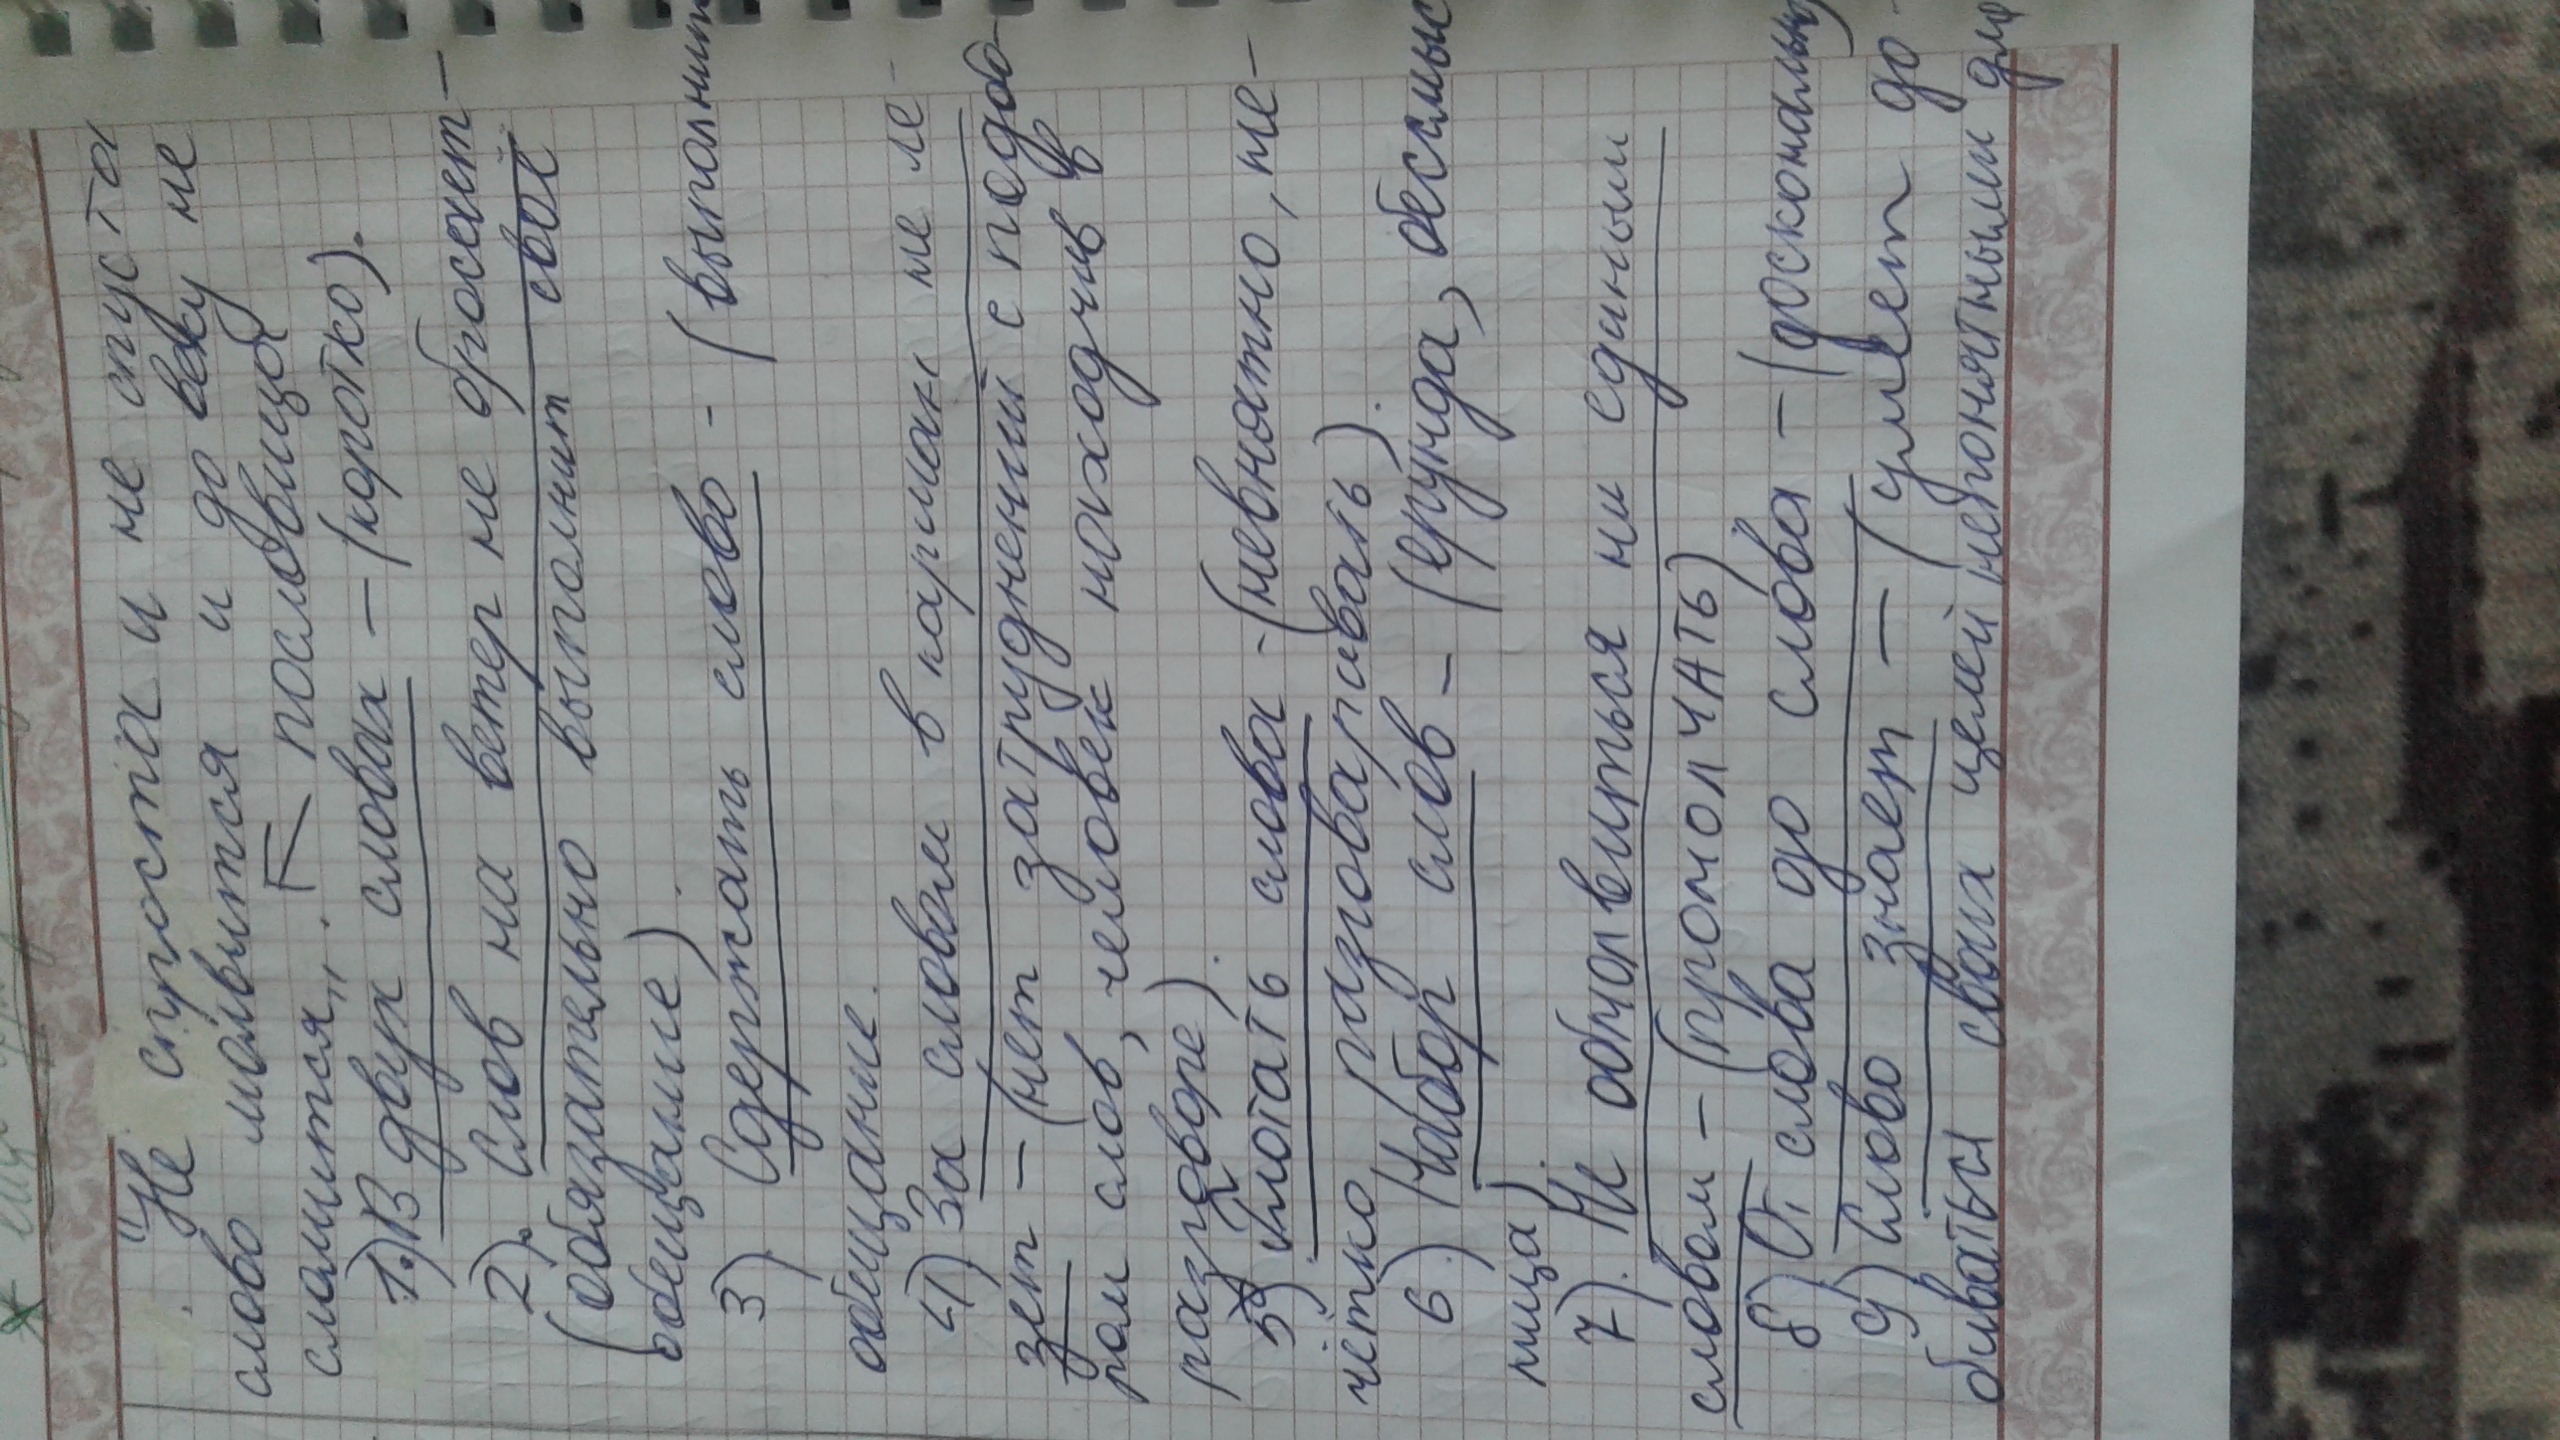 "Не спроста и не спуста
слово молвится и до веку не
сломится". — пословица
1.) В двух словах — (коротко).
2). Слов на ветер не бросает —
(обязательно выполнит своё
обещание).
3). Сдержать слово - (выполнить
обещание.
4) За словом в карман не ле-
зет — (нет затруднений с подбо-
ром слов, человек находчив в
разговоре).
5) Глотать слова - (невнятно, не-
чётко разговаривать).
6). Набор слов — (ерунда, бессмыс
лица).
7). Не обмолвиться ни единым
словом — (промолчать)
8) От слова до слова — (досконально)
9) Слово знает — (умеет до-
биваться своих целей непонятными для